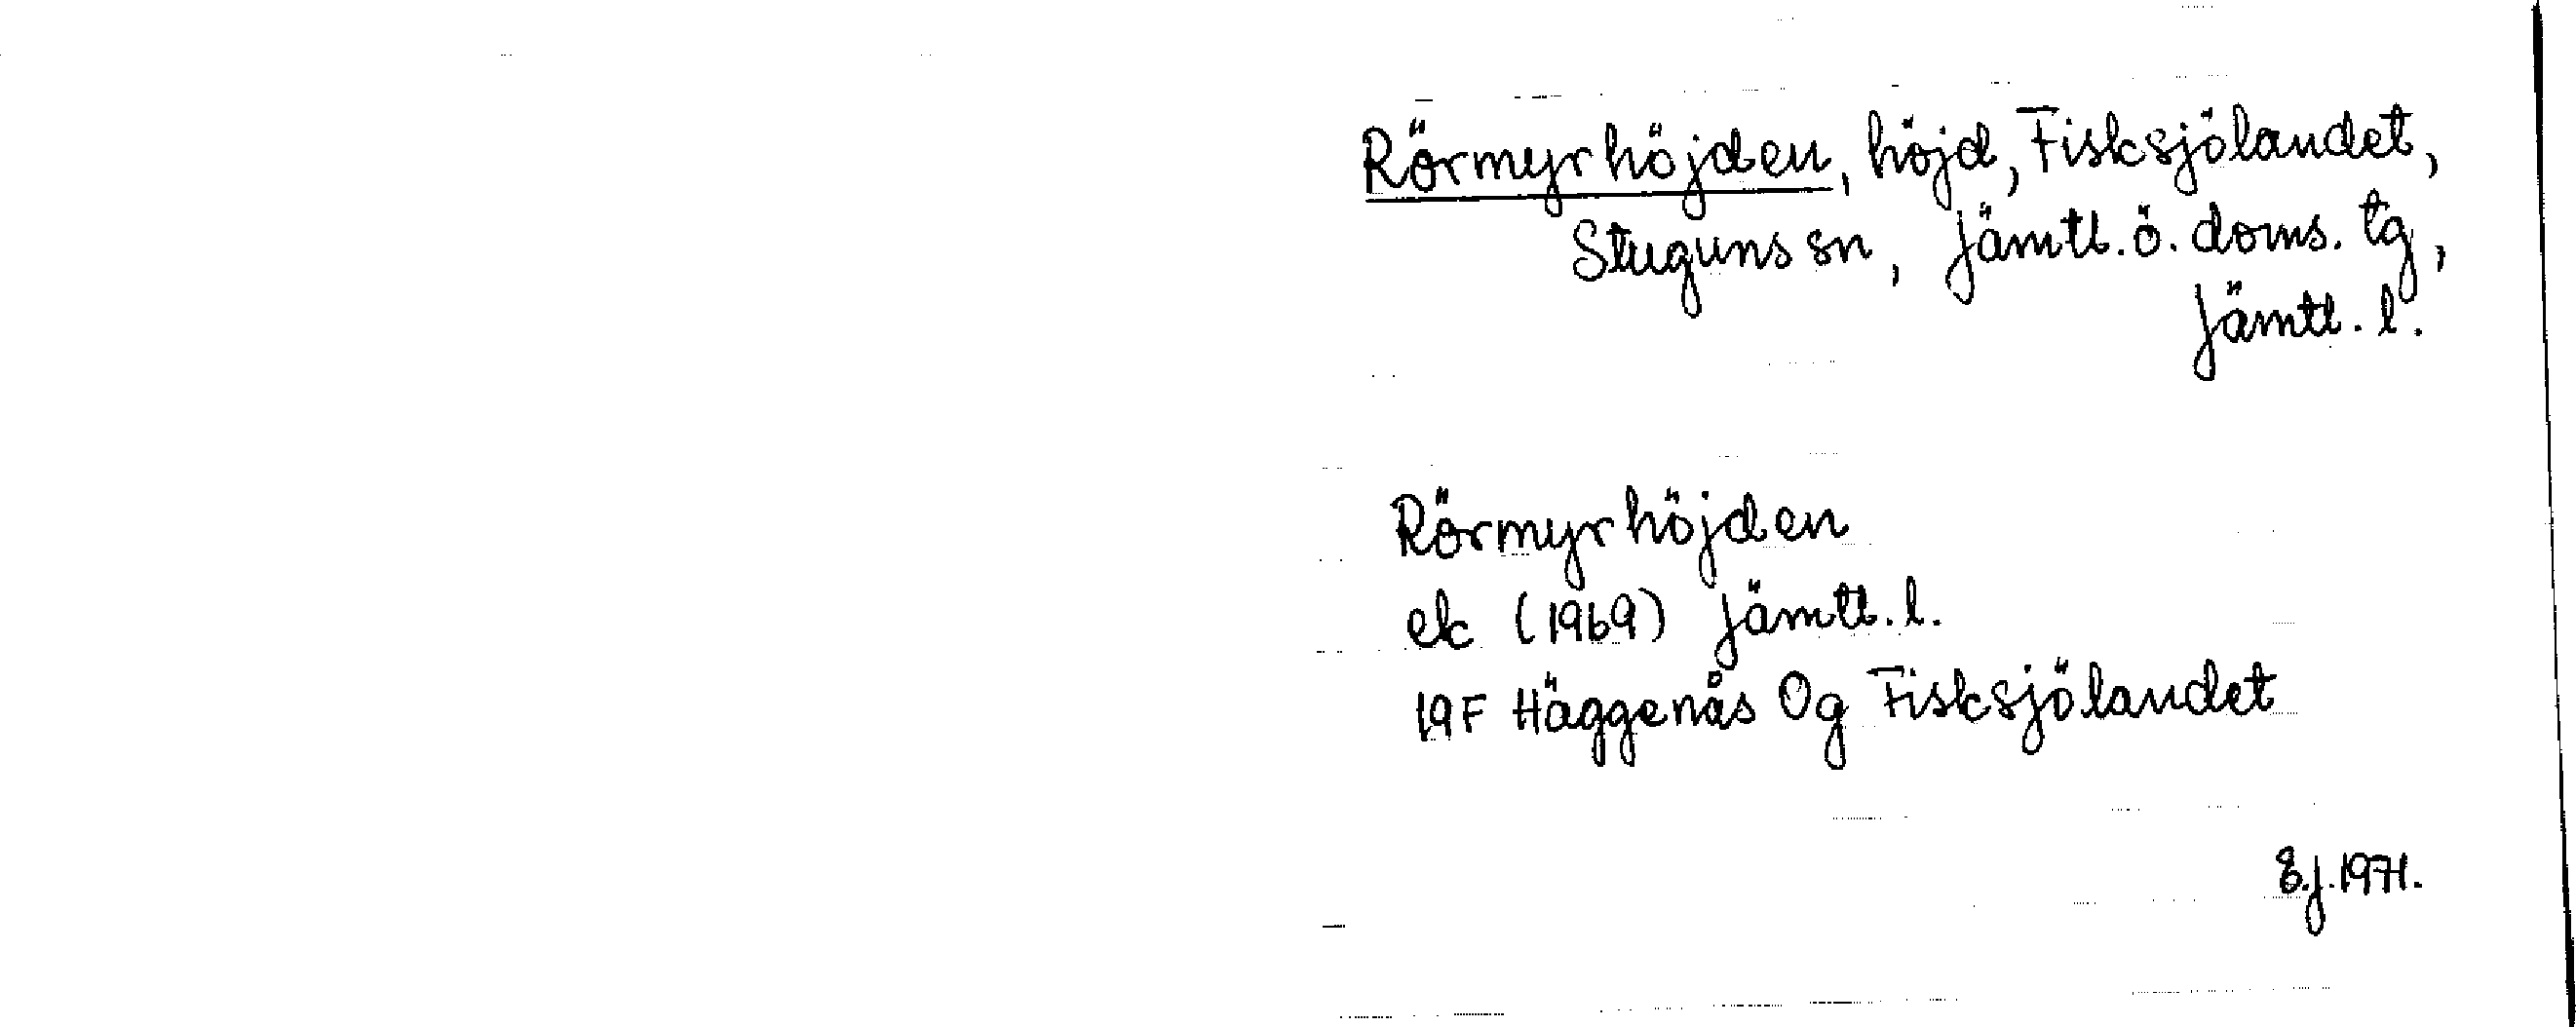 Rörmyrhöjden, höjd, Fisksjölandet,
Stuguns sn, Jämtl. ö. doms. tg,
Jämtl. l.
Rörmyrhöjden
ek (1969) Jämtl. l.
19F Häggenås 0g Fisksjölandet
E.J. 1971.